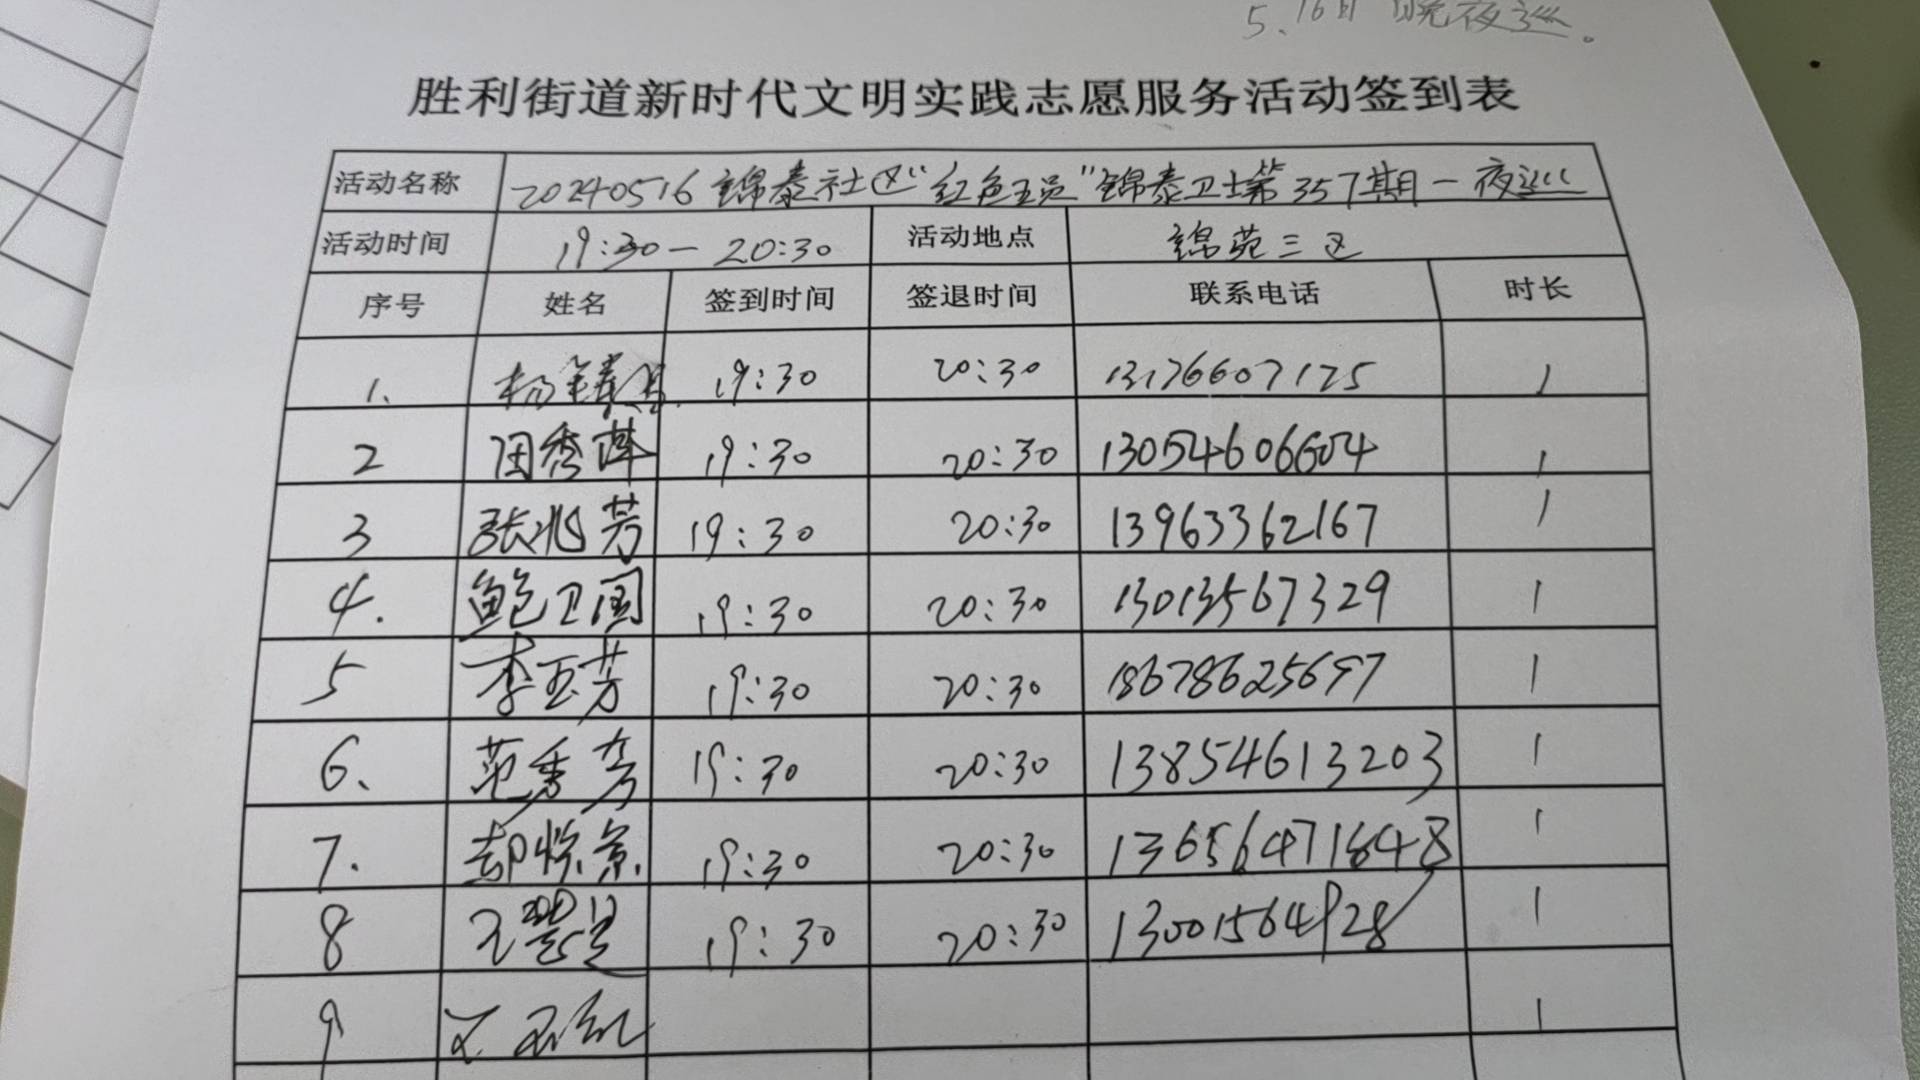 5.16日 晚夜巡。
胜利街道新时代文明实践志愿服务活动签到表
活动名称 20240516 锦泰社区“红色五员”锦泰卫士第357期一夜巡
活动时间 19:30-20:30 活动地点 锦苑三区
序号 姓名 签到时间 签退时间 联系电话 时长
1. 19:30 20:30 13176607175 1
2 田秀萍 19:30 20:30 13054606604 1
3 张兆芳 19:30 20:30 13963362167 1
4. 鲍卫国 19:30 20:30 13013567329 1
5 李玉芳 19:30 20:30 18678625697 1
6. 范秀芳 19:30 20:30 13854613203 1
7. 19:30 20:30 13656471848 1
8 19:30 20:30 13001564928 1
9 1